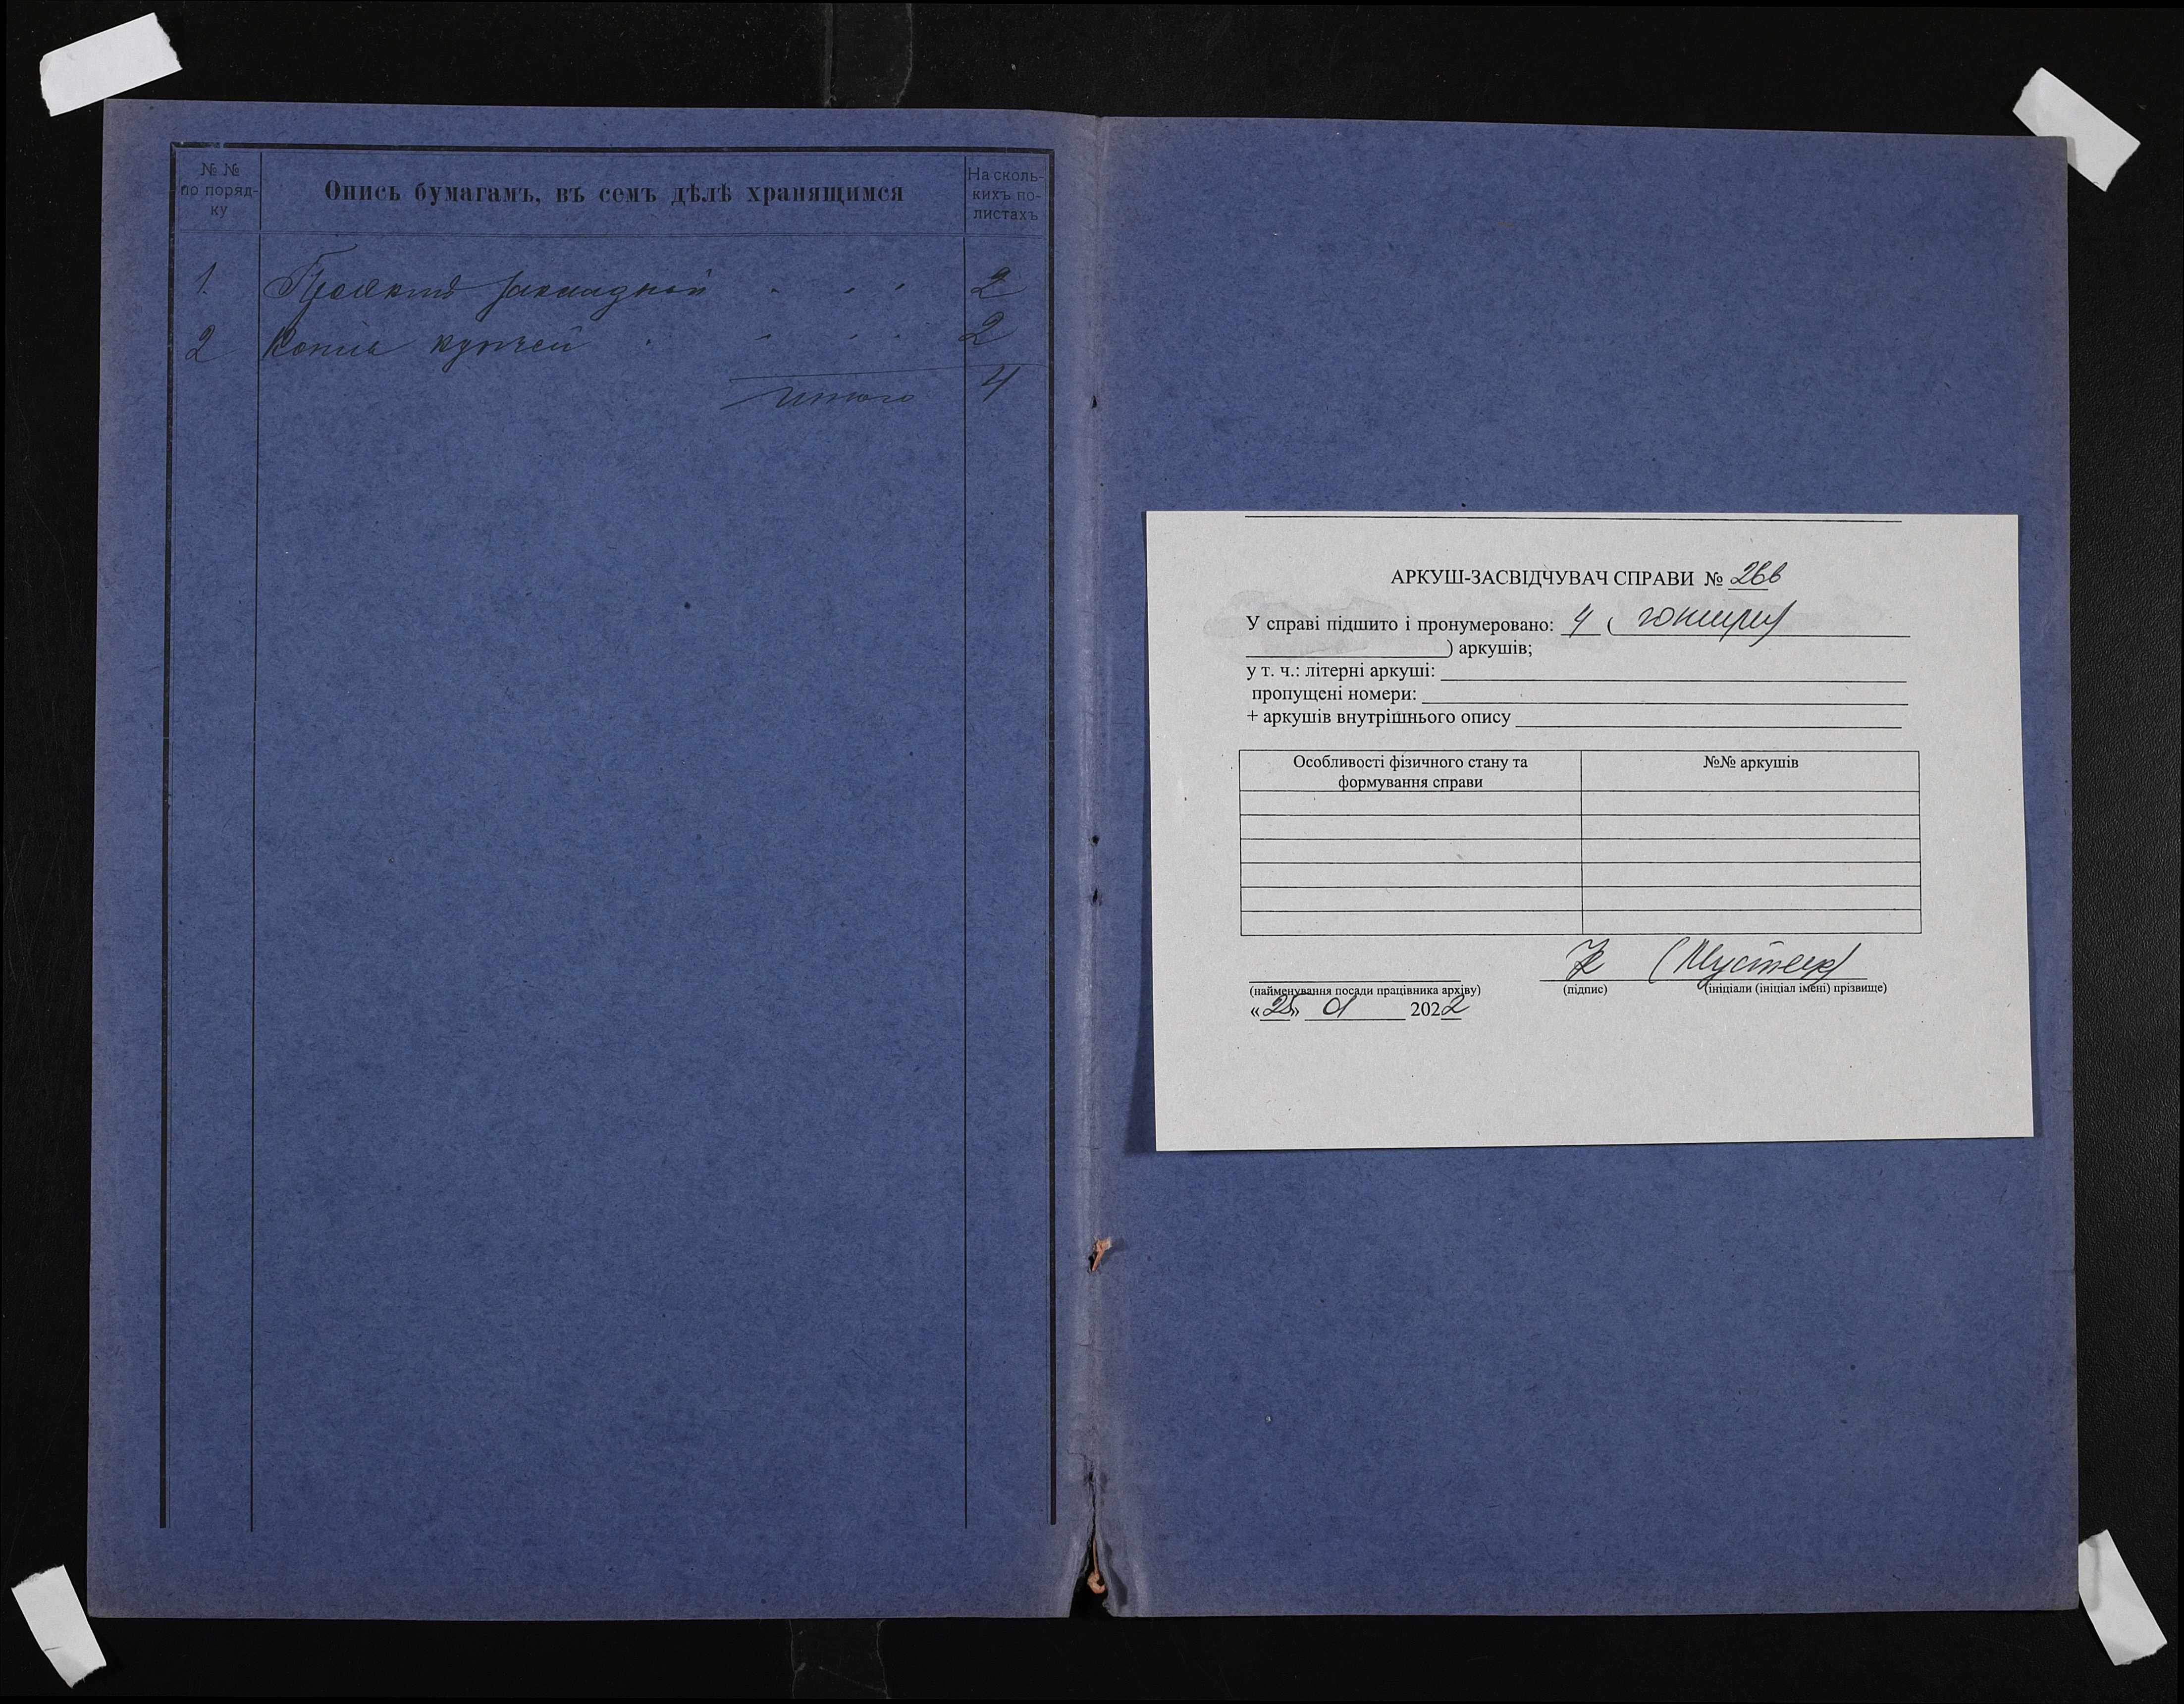 № №
по поряд-
ку
Опись бумагамъ, въ семъ дѣлѣ хранящимся
На сколь-
кихъ по-
листахъ
1. Проектъ закладной 2
2 Копия купчей 2
Итого 4
АРКУШ-ЗАСВІДЧУВАЧ СПРАВИ №
У справі підшито і пронумеровано: 4 ( чотири)
) аркушів;
у т. ч.: літерні аркуші:
пропущені номери:
+ аркушів внутрішнього опису
Особливості фізичного стану та
формування справи
№№ аркушів
(найменування посади працівника архіву) (підпис) (ініціали (ініціал імені) прізвище)
«25» 01 2022